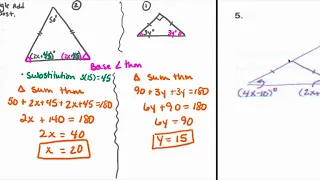 gle Add
ost.
②
①
5.
50°
3y°
3y°
(2x+45)°
Base ∠ thm
• Substitution 3(15)=45
Δ sum thm
50 + 2x+45 + 2x+45 = 180
2x + 140 = 180
2x = 40
x = 20
Δ sum thm
90 + 3y + 3y = 180
6y + 90 = 180
6y = 90
y = 15
(4x-10)°
(2x+